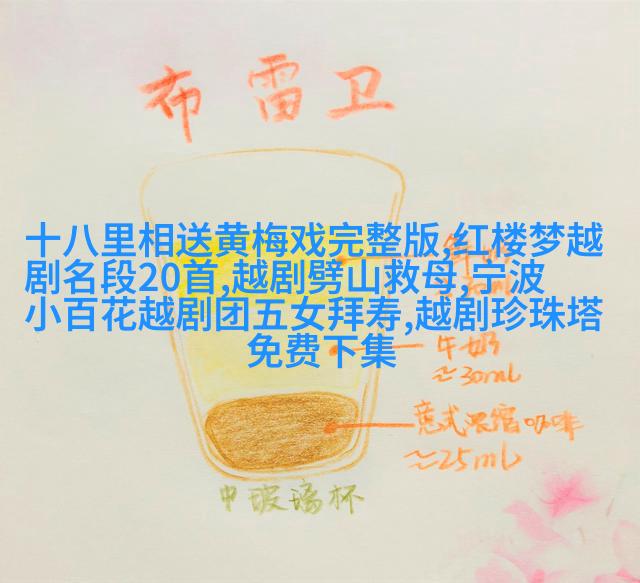 布雷卫
十八里相送黄梅戏完整版,红楼梦越
剧名段20首,越剧劈山救母,宁波
小百花越剧团五女拜寿,越剧珍珠塔
免费下集
牛奶
≈30ml
意式浓缩咖啡
≈25ml
中玻璃杯